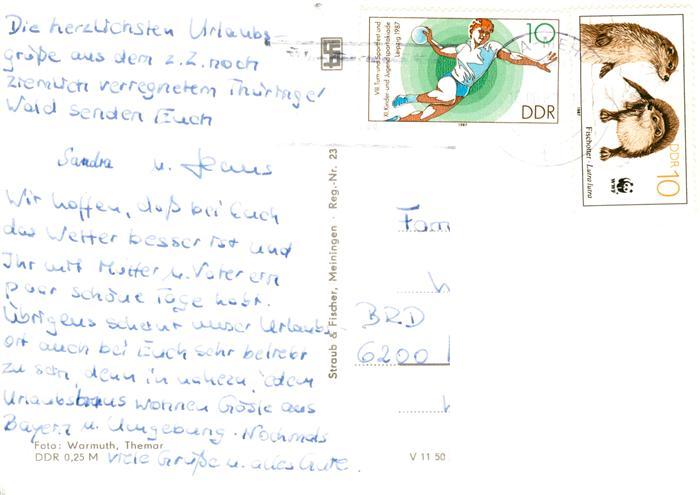 Die herzlichsten Urlaubs-
grüße aus dem z.Z. noch
ziemlich verregnetem Thüringer
Wald senden Euch
Sandra u. Jens
Wir hoffen, daß bei Euch
das Wetter besser ist und
Ihr mit Mutter u. Vater ein
paar schöne Tage habt.
Übrigens scheint unser Urlaubs-
ort auch bei Euch sehr beliebt
zu sein, denn in nahezu jedem
Urlaubshaus wohnen Gäste aus
Bayern u. Umgebung. Nochmals
viele Grüße u. alles Gute.
Foto: Warmuth, Themar
DDR 0,25 M
V 11 50
Straub & Fischer, Meiningen · Reg.-Nr. 23
Fam
BRD
6200
VIII. Turn- und Sportfest und
XI. Kinder- und Jugendspartakiade
Leipzig 1987
10
DDR
1987
Fischotter · Lutra lutra
1987
WWF
DDR
10